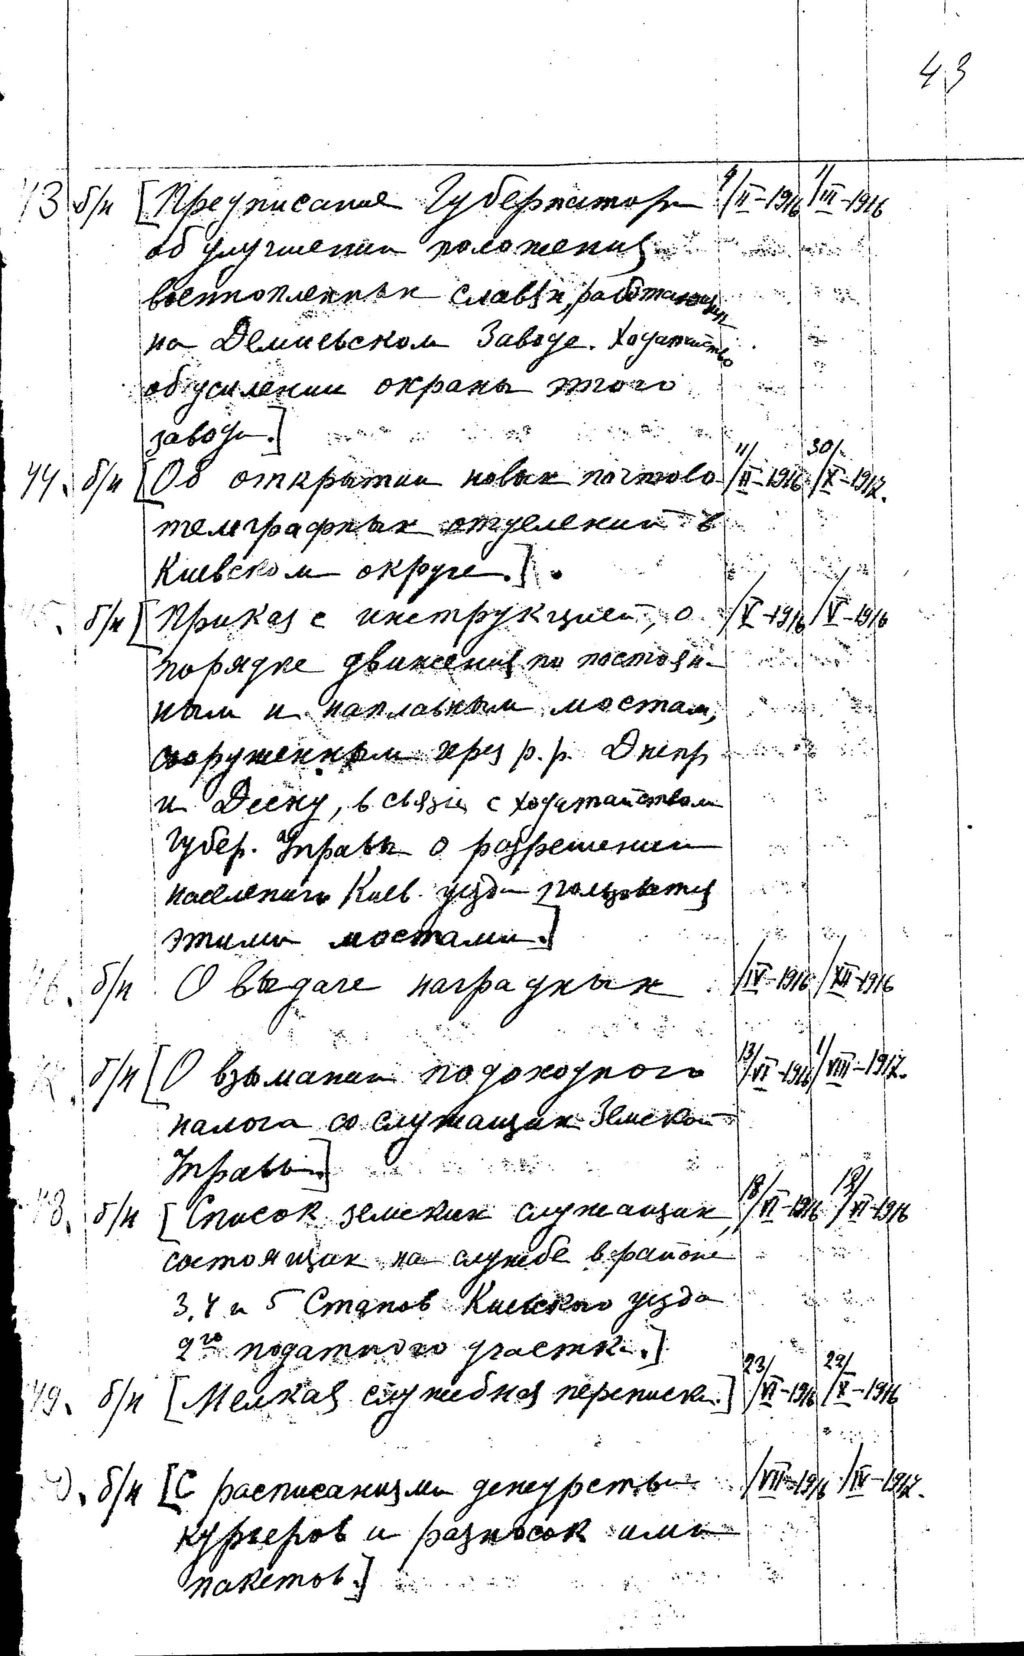 43
43 б/н [Предписание Губернатора 9/II-1916 1/III-1916
об улучшении положения
военнопленных славян, работающих
на Демиевском Заводе. Ходатайство
об усилении охраны этого
завода.]
44. б/н [Об открытии новых почтово 11/II-1916 30/X-1917.
телеграфных отделений в
Киевском округе.].
45. б/н [Приказ с инструкцией, о /V-1916 /V-1916
порядке движения по постоян-
ным и наплавным мостам,
сооруженным через р.р. Днепр
и Десну, в связи с ходатайством
Губер. Управы о разрешении
населению Киев. уезда пользоваться
этими мостами.]
46. б/н О выдаче наградных /IV-1916 /XII-1916
б/н [О взымании подоходного 13/VI-1916 1/VIII-1917.
налога со служащих Земской
Управы]
48. б/н [Список земских служащих, 18/VI-1916 18/VI-1916
состоящих на службе в районе
3, 4 и 5 Станов Киевского уезда
2го податного участка.]
49. б/н [Мелкая служебная переписка.] 23/VI-1916 22/X-1916
б/н [С расписаниями дежурств /VII-1916 /IV-1917.
курьеров и разносок ими
пакетов.]